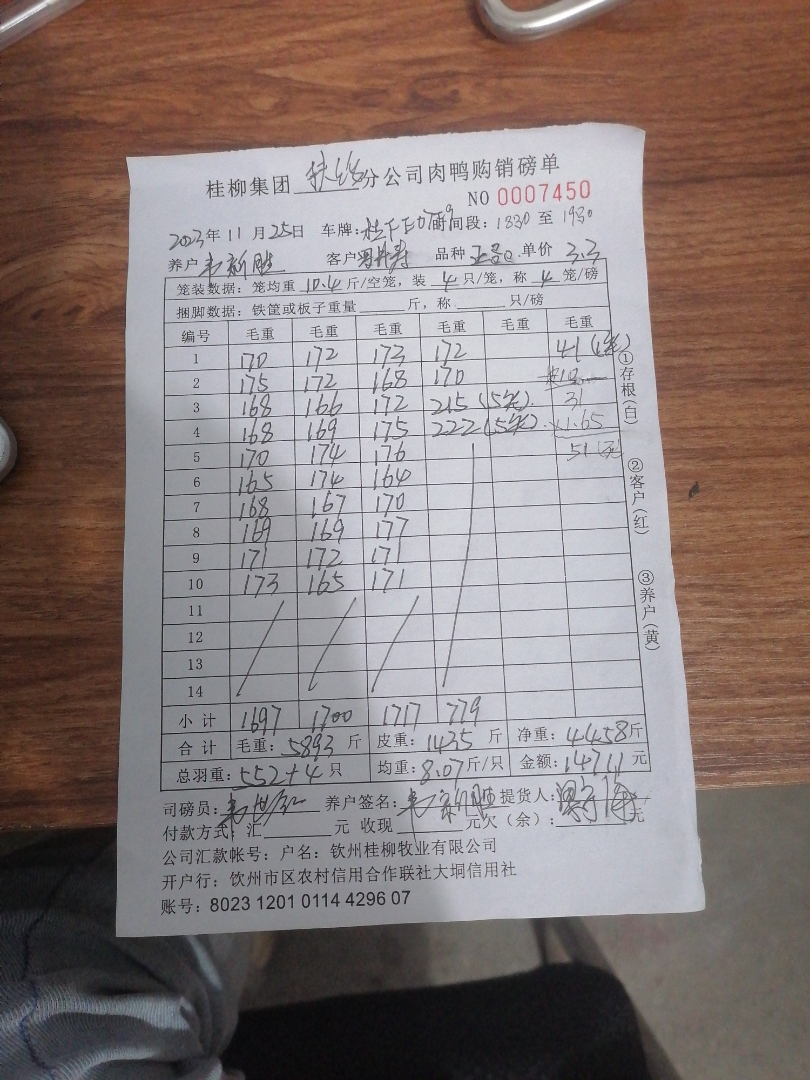 桂柳集团 分公司肉鸭购销磅单
NO 0007450
2023年11月25日 车牌: 时间段:1830至1930
养户韦新胜 客户 品种 单价3.3
笼装数据:笼均重10.4斤/空笼,装4只/笼,称4笼/磅
捆脚数据:铁筐或板子重量 斤,称 只/磅
编号 毛重 毛重 毛重 毛重 毛重 毛重
1 170 172 173 172 41
2 175 172 168 170
3 168 166 172 215(5笼) 31
4 168 169 175 222(5笼) ×1.65
5 170 174 176 51(元)
6 165 174 164
7 168 167 170
8 169 169 177
9 171 172 171
10 173 165 171
11
12
13
14
小计 1697 1700 1717 779
合计 毛重:5893斤 皮重:1435斤 净重:4458斤
总羽重:552+4只 均重:8.07斤/只 金额:14711元
司磅员: 养户签名:韦新胜 提货人:
付款方式:汇 元 收现 元欠(余): 元
公司汇款帐号:户名:钦州桂柳牧业有限公司
开户行:钦州市区农村信用合作联社大垌信用社
账号:8023 1201 0114 4296 07
①存根(白)
②客户(红)
③养户(黄)